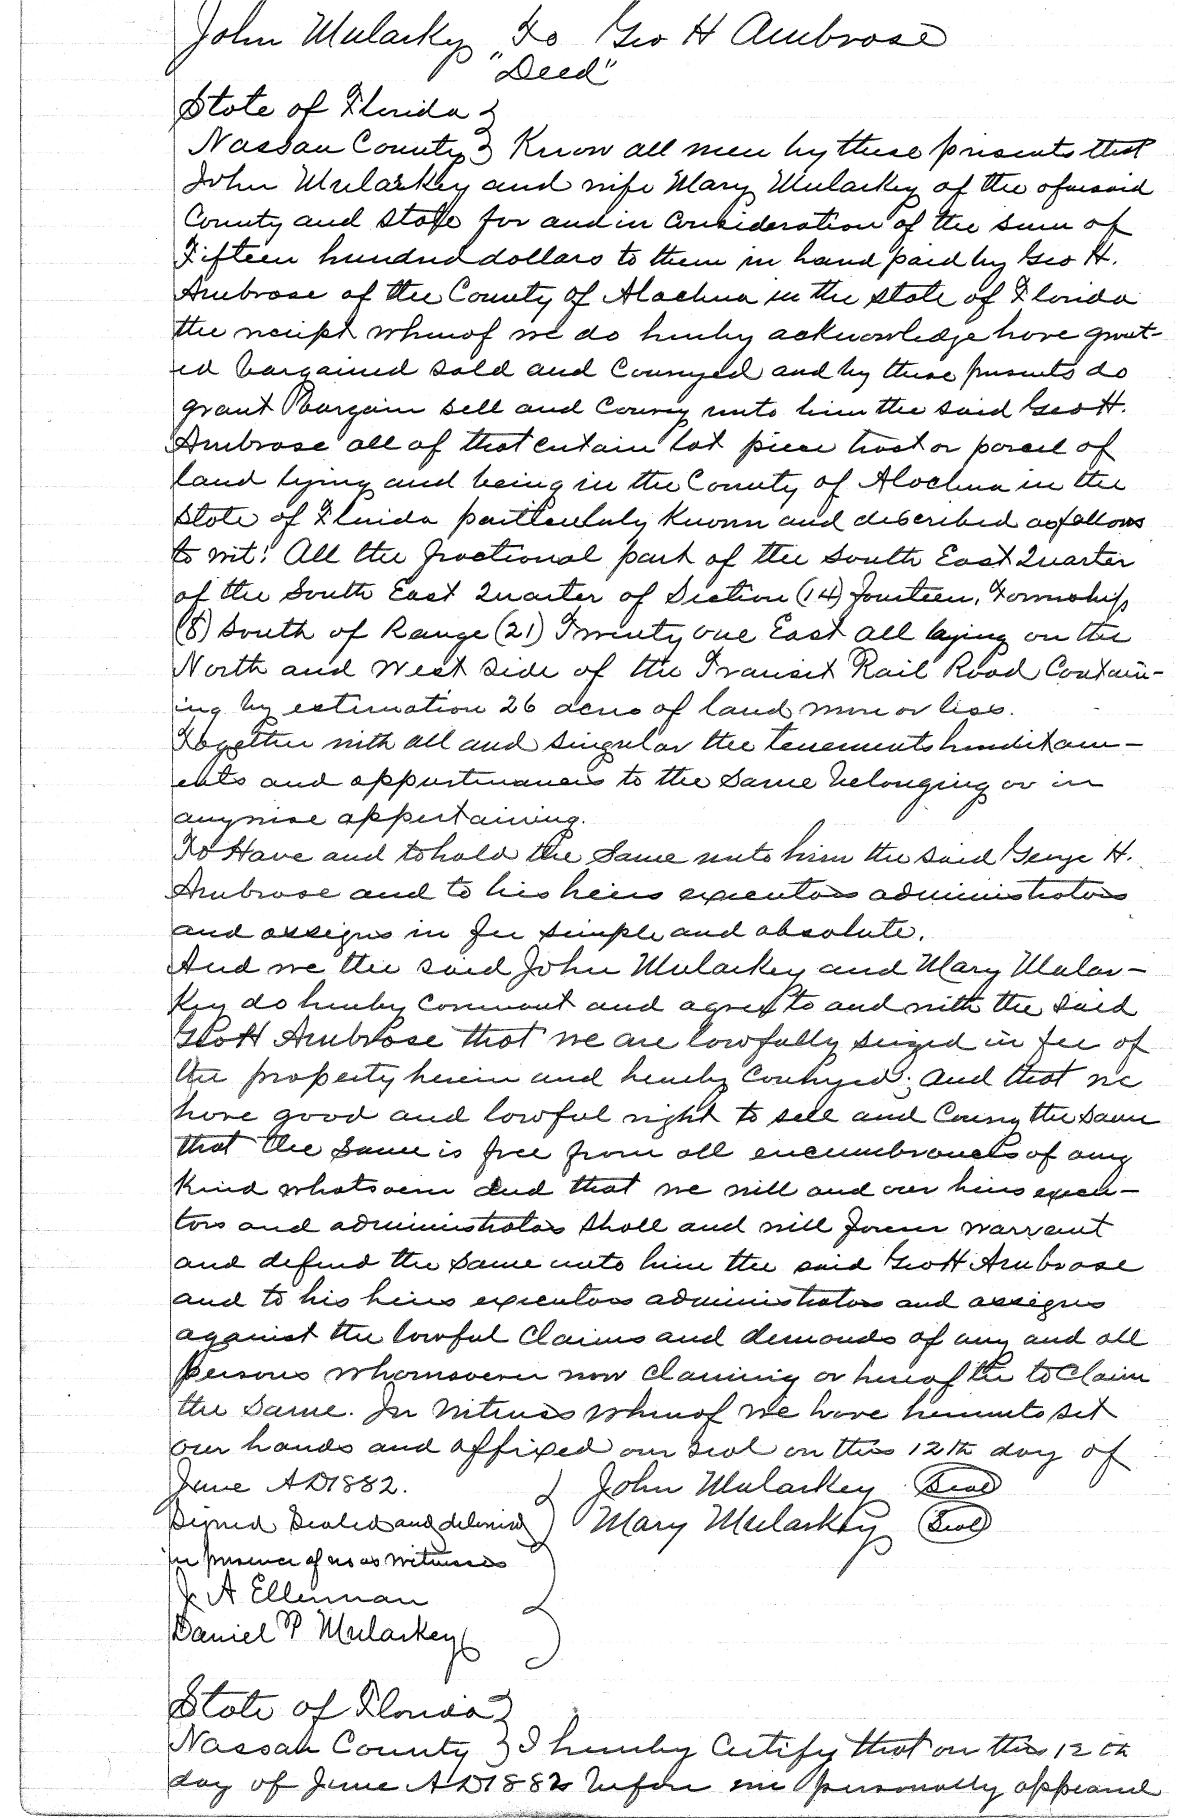 John Mularkey To Geo H Ambrose
"Deed"
State of Florida }
Nassau County } Know all men by these presents that
John Mularkey and wife Mary Mularkey of the aforesaid
County and State for and in Consideration of the sum of
Fifteen hundred dollars to them in hand paid by Geo H.
Ambrose of the County of Alachua in the state of Florida
the receipt whereof we do hereby acknowledge have grant-
ed bargained sold and Conveyed and by these presents do
grant Bargain sell and Convey unto him the said Geo H.
Ambrose all of that certain lot piece tract or parcel of
land lying and being in the County of Alachua in the
State of Florida particularly known and described as follows
to wit: All the fractional part of the South East Quarter
of the South East Quarter of Section (14) fourteen, Township
(8) South of Range (21) Twenty one East all laying on the
North and West side of the Transit Rail Road Contain-
ing by estimation 26 acres of land more or less.
Together with all and singular the tenements heredita-
ents and appurtenances to the same belonging or in
anywise appertaining.
To Have and to hold the same unto him the said George H.
Ambrose and to his heirs executors administrators
and assigns in fee simple and absolute.
And we the said John Mularkey and Mary Mular-
key do hereby covenant and agree to and with the said
Geo H Ambrose that we are lawfully seized in fee of
the property herein and hereby Conveyed; And that we
have good and lawful right to sell and Convey the same
that the same is free from all encumbrances of any
kind whatsoever And that we will and our heirs execu-
tors and administrators shall and will forever warrant
and defend the same unto him the said Geo H Ambrose
and to his heirs executors administrators and assigns
against the lawful Claims and demands of any and all
persons whomsoever now claiming or hereafter to Claim
the same. In witness whereof we have hereunto set
our hands and affixed our seal on this 12th day of
June AD 1882. } John Mularkey (Seal)
Signed Sealed and delivered } Mary Mularkey (Seal)
in presence of us as witnesses
J. A Ellerman
Daniel P Mularkey
State of Florida }
Nassau County } I hereby Certify that on this 12th
day of June AD 1882 before me personally appeared